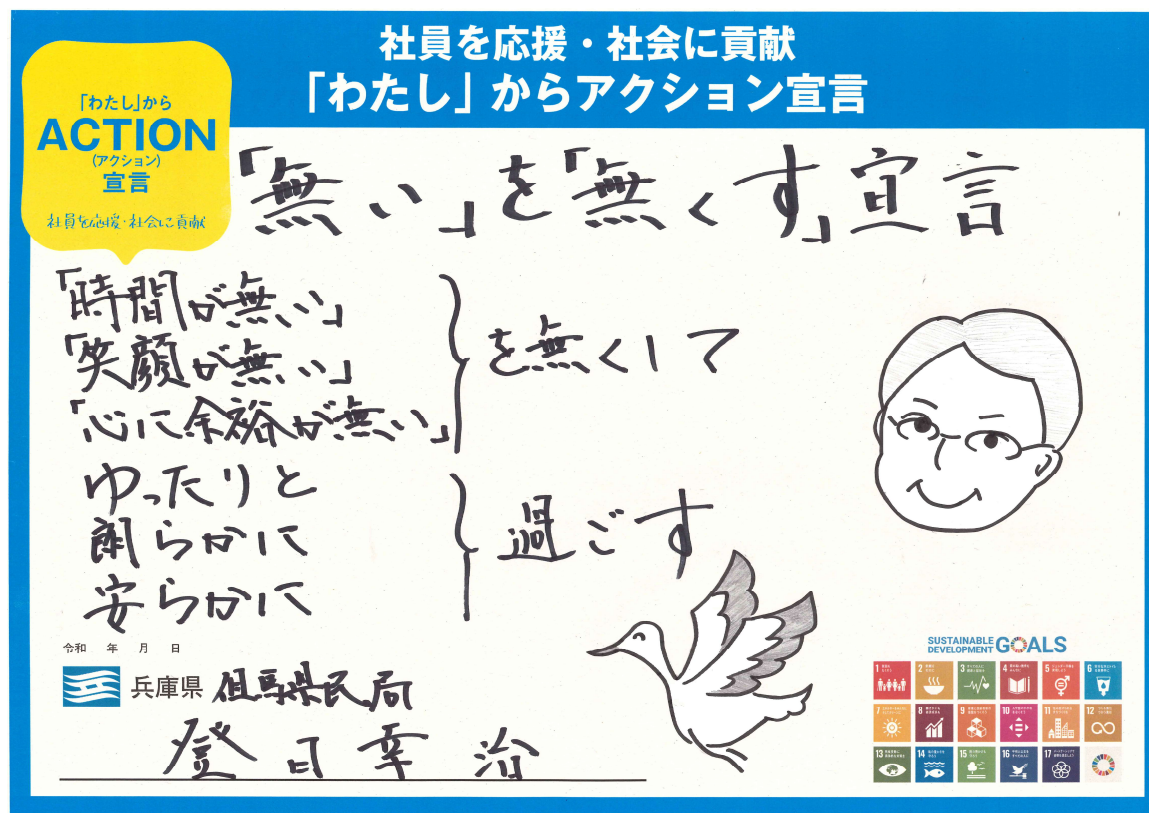 社員を応援・社会に貢献
「わたし」からアクション宣言
「わたし」から
ACTION
(アクション)
宣言
社員を応援・社会に貢献
「無い」を「無くす」宣言
「時間が無い」
「笑顔が無い」
「心に余裕が無い」
を無くして
ゆったりと
朗らかに
安らかに
過ごす
令和 年 月 日
兵庫県 但馬県民局
登日幸治
SUSTAINABLE
DEVELOPMENT GOALS
1 2 3 4 5 6
7 8 9 10 11 12
13 14 15 16 17